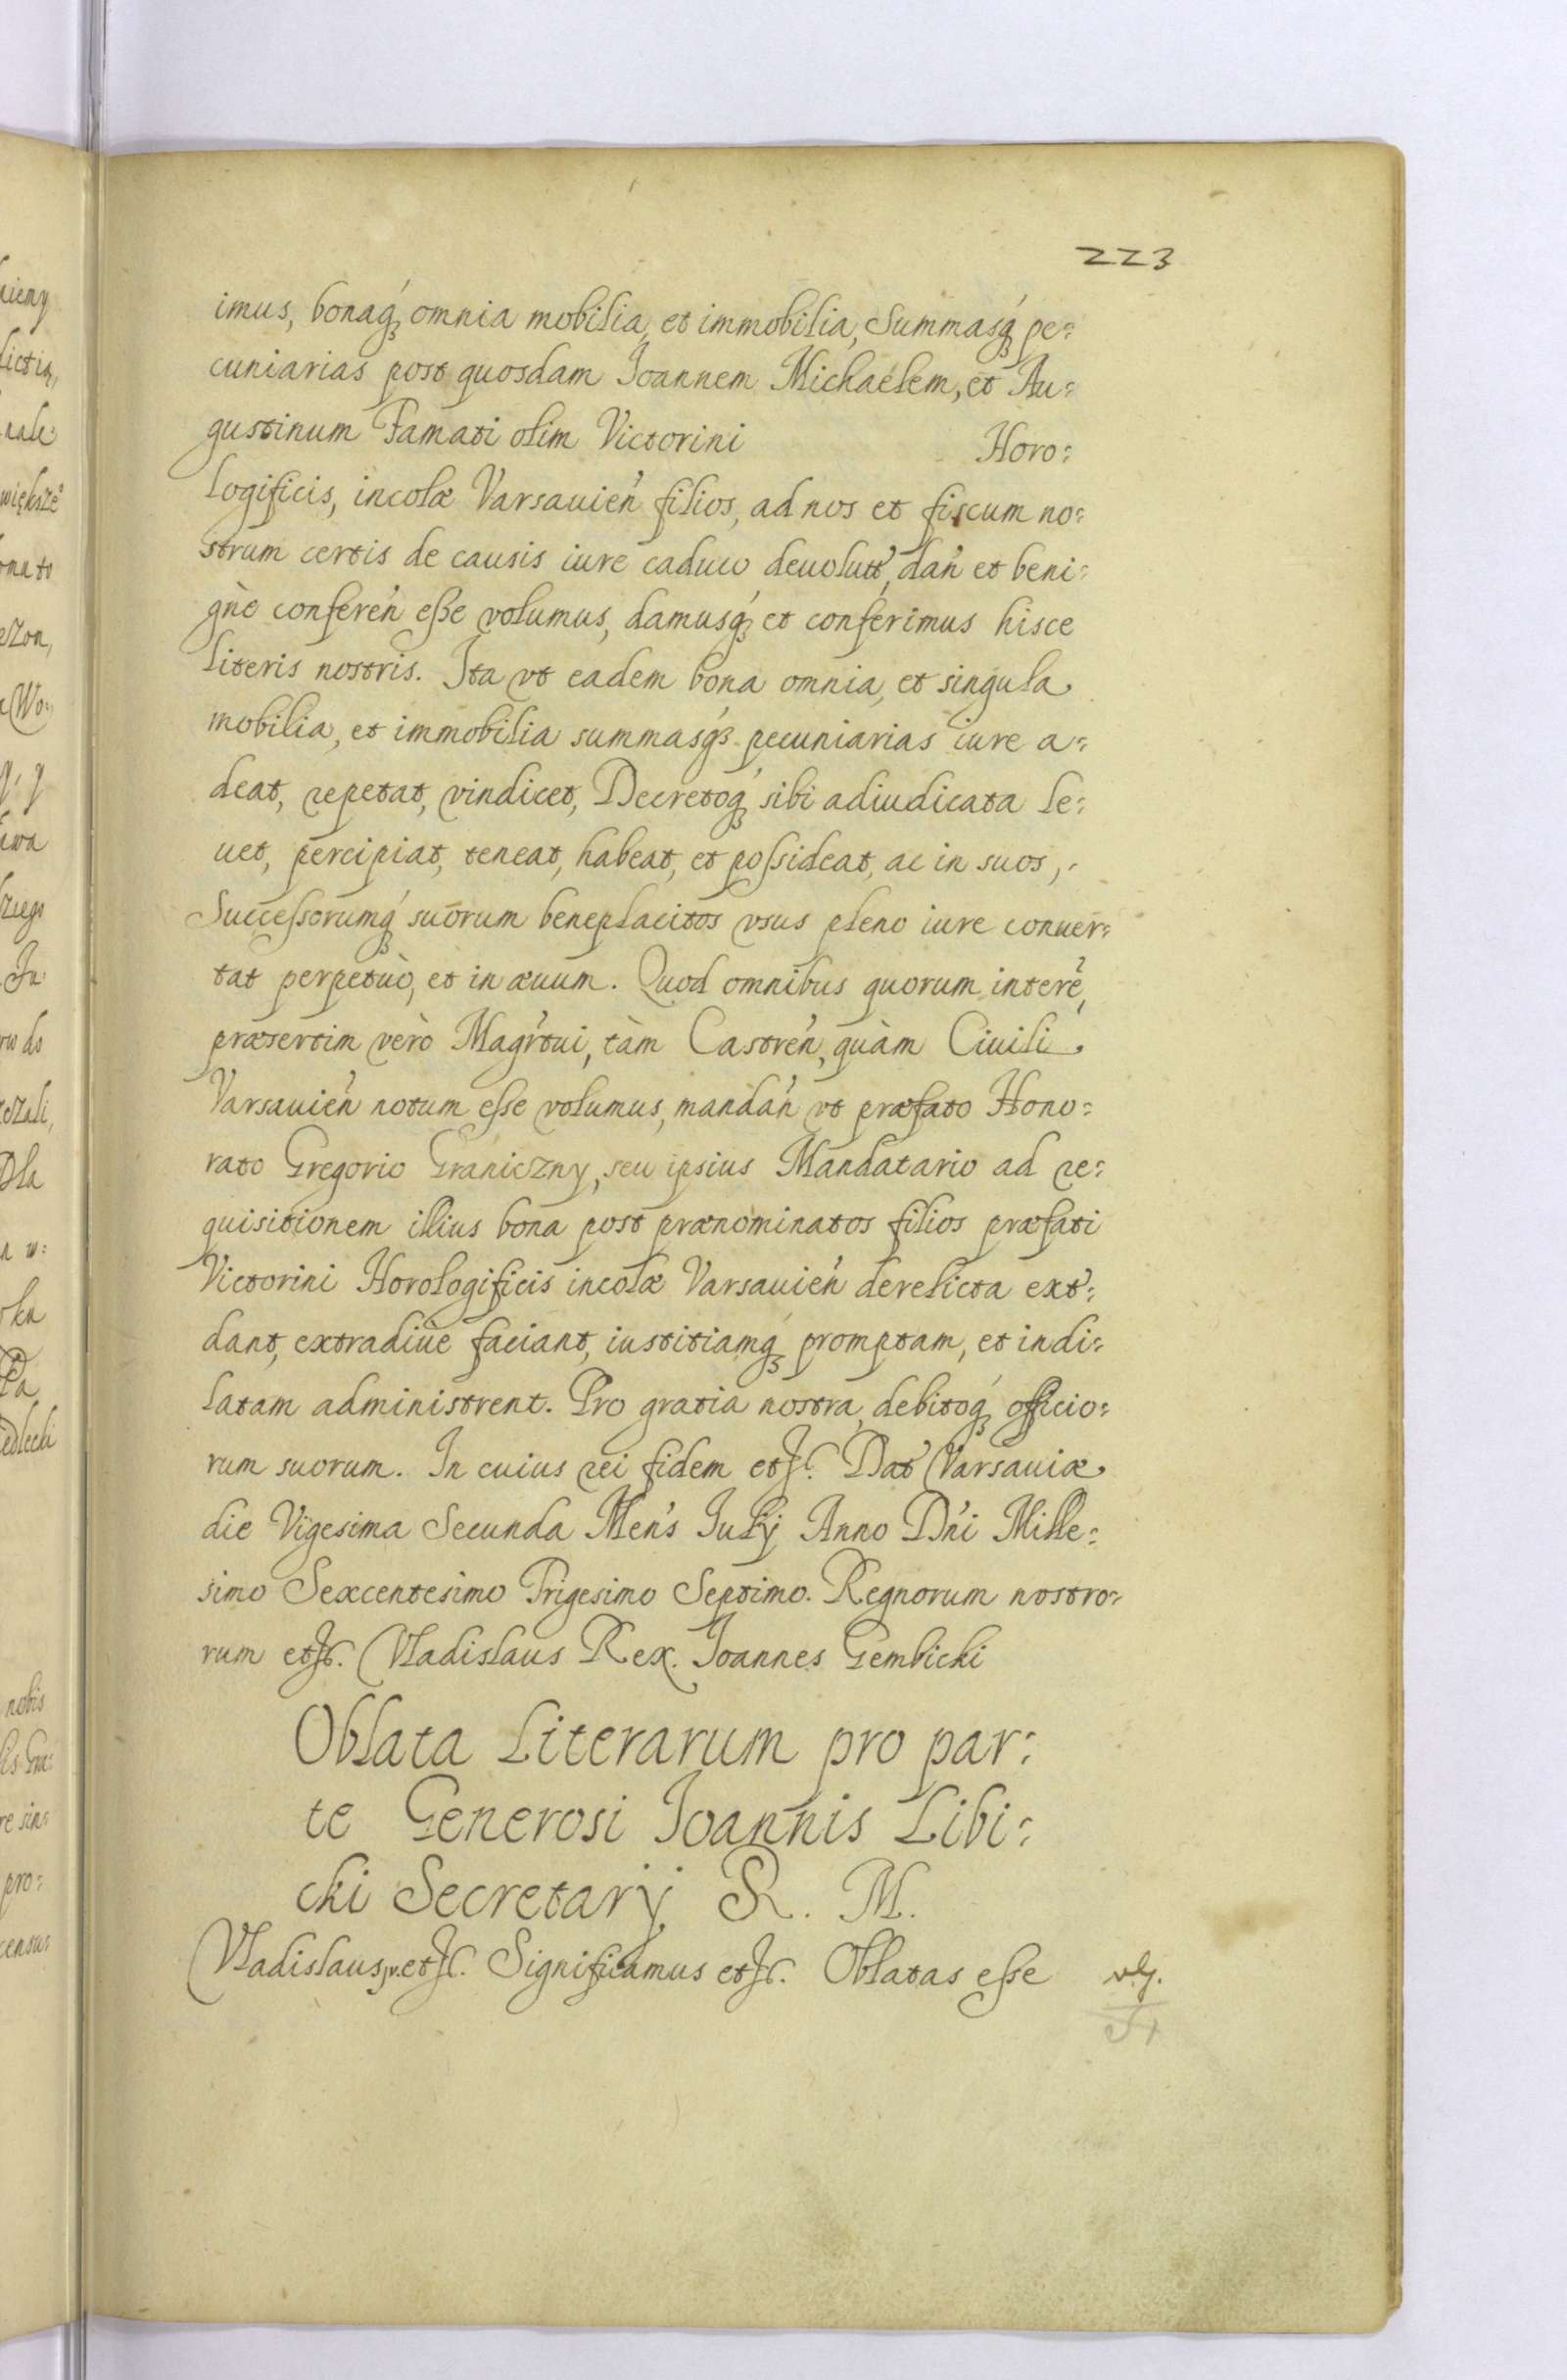 223
imus, bonaq́ꝫ omnia mobilia, et immobilia, Summasq́ꝫ pe:
cuniarias post quosdam Ioannem Michaëlem, et Au:
gustinum Famati olim Victorini Horo:
logificis, incolæ Varsauień filios, ad nos et fiscum no:
strum certis de causis iure caduco deuolutt́, dań et beni:
gnè confereń eſse volumus, damusq́ꝫ et conferimus hisce
literis nostris. Ita vt eadem bona omnia, et singula
mobilia, et immobilia summasq́ꝫ pecuniarias iure a:
deat, repetat, vindicet, Decretoq́ꝫ sibi adiudicata le:
uet, percipiat, teneat, habeat, et poſsideat, ac in suos,
Succeſsorumq́ꝫ suorum beneplacitos vsus pleno iure conuer:
tat perpetuò, et in æuum. Quod omnibus quorum interẽ,
præsertim verò Magŕtui, tàm Castreń, quàm Ciuili
Varsauień notum eſse volumus, mandań vt præfato Hono:
rato Gregorio Graniczny, seu ipsius Mandatario ad re:
quisitionem illius bona post prænominatos filios præfati
Victorini Horologificis incolæ Varsauień derelicta ext́:
dant, extradiúe faciant, iustitiamq́ꝫ promptam, et indi:
latam administrent. Pro gratia nostra, debitoq́ꝫ officio:
rum suorum. In cuius rei fidem etc. Dat́ Varsauiæ
die Vigesima Secunda Meńs Iulij Anno Dńi Mille:
simo Sexcentesimo Trigesimo Septimo. Regnorum nostro:
rum etc. Vladislaus Rex. Ioannes Gembicki
Oblata Literarum pro par:
te Generosi Ioannis Libi:
cki Secretarij S. R. M.
Vladislaus, etc. Significamus etc. Oblatas eſse